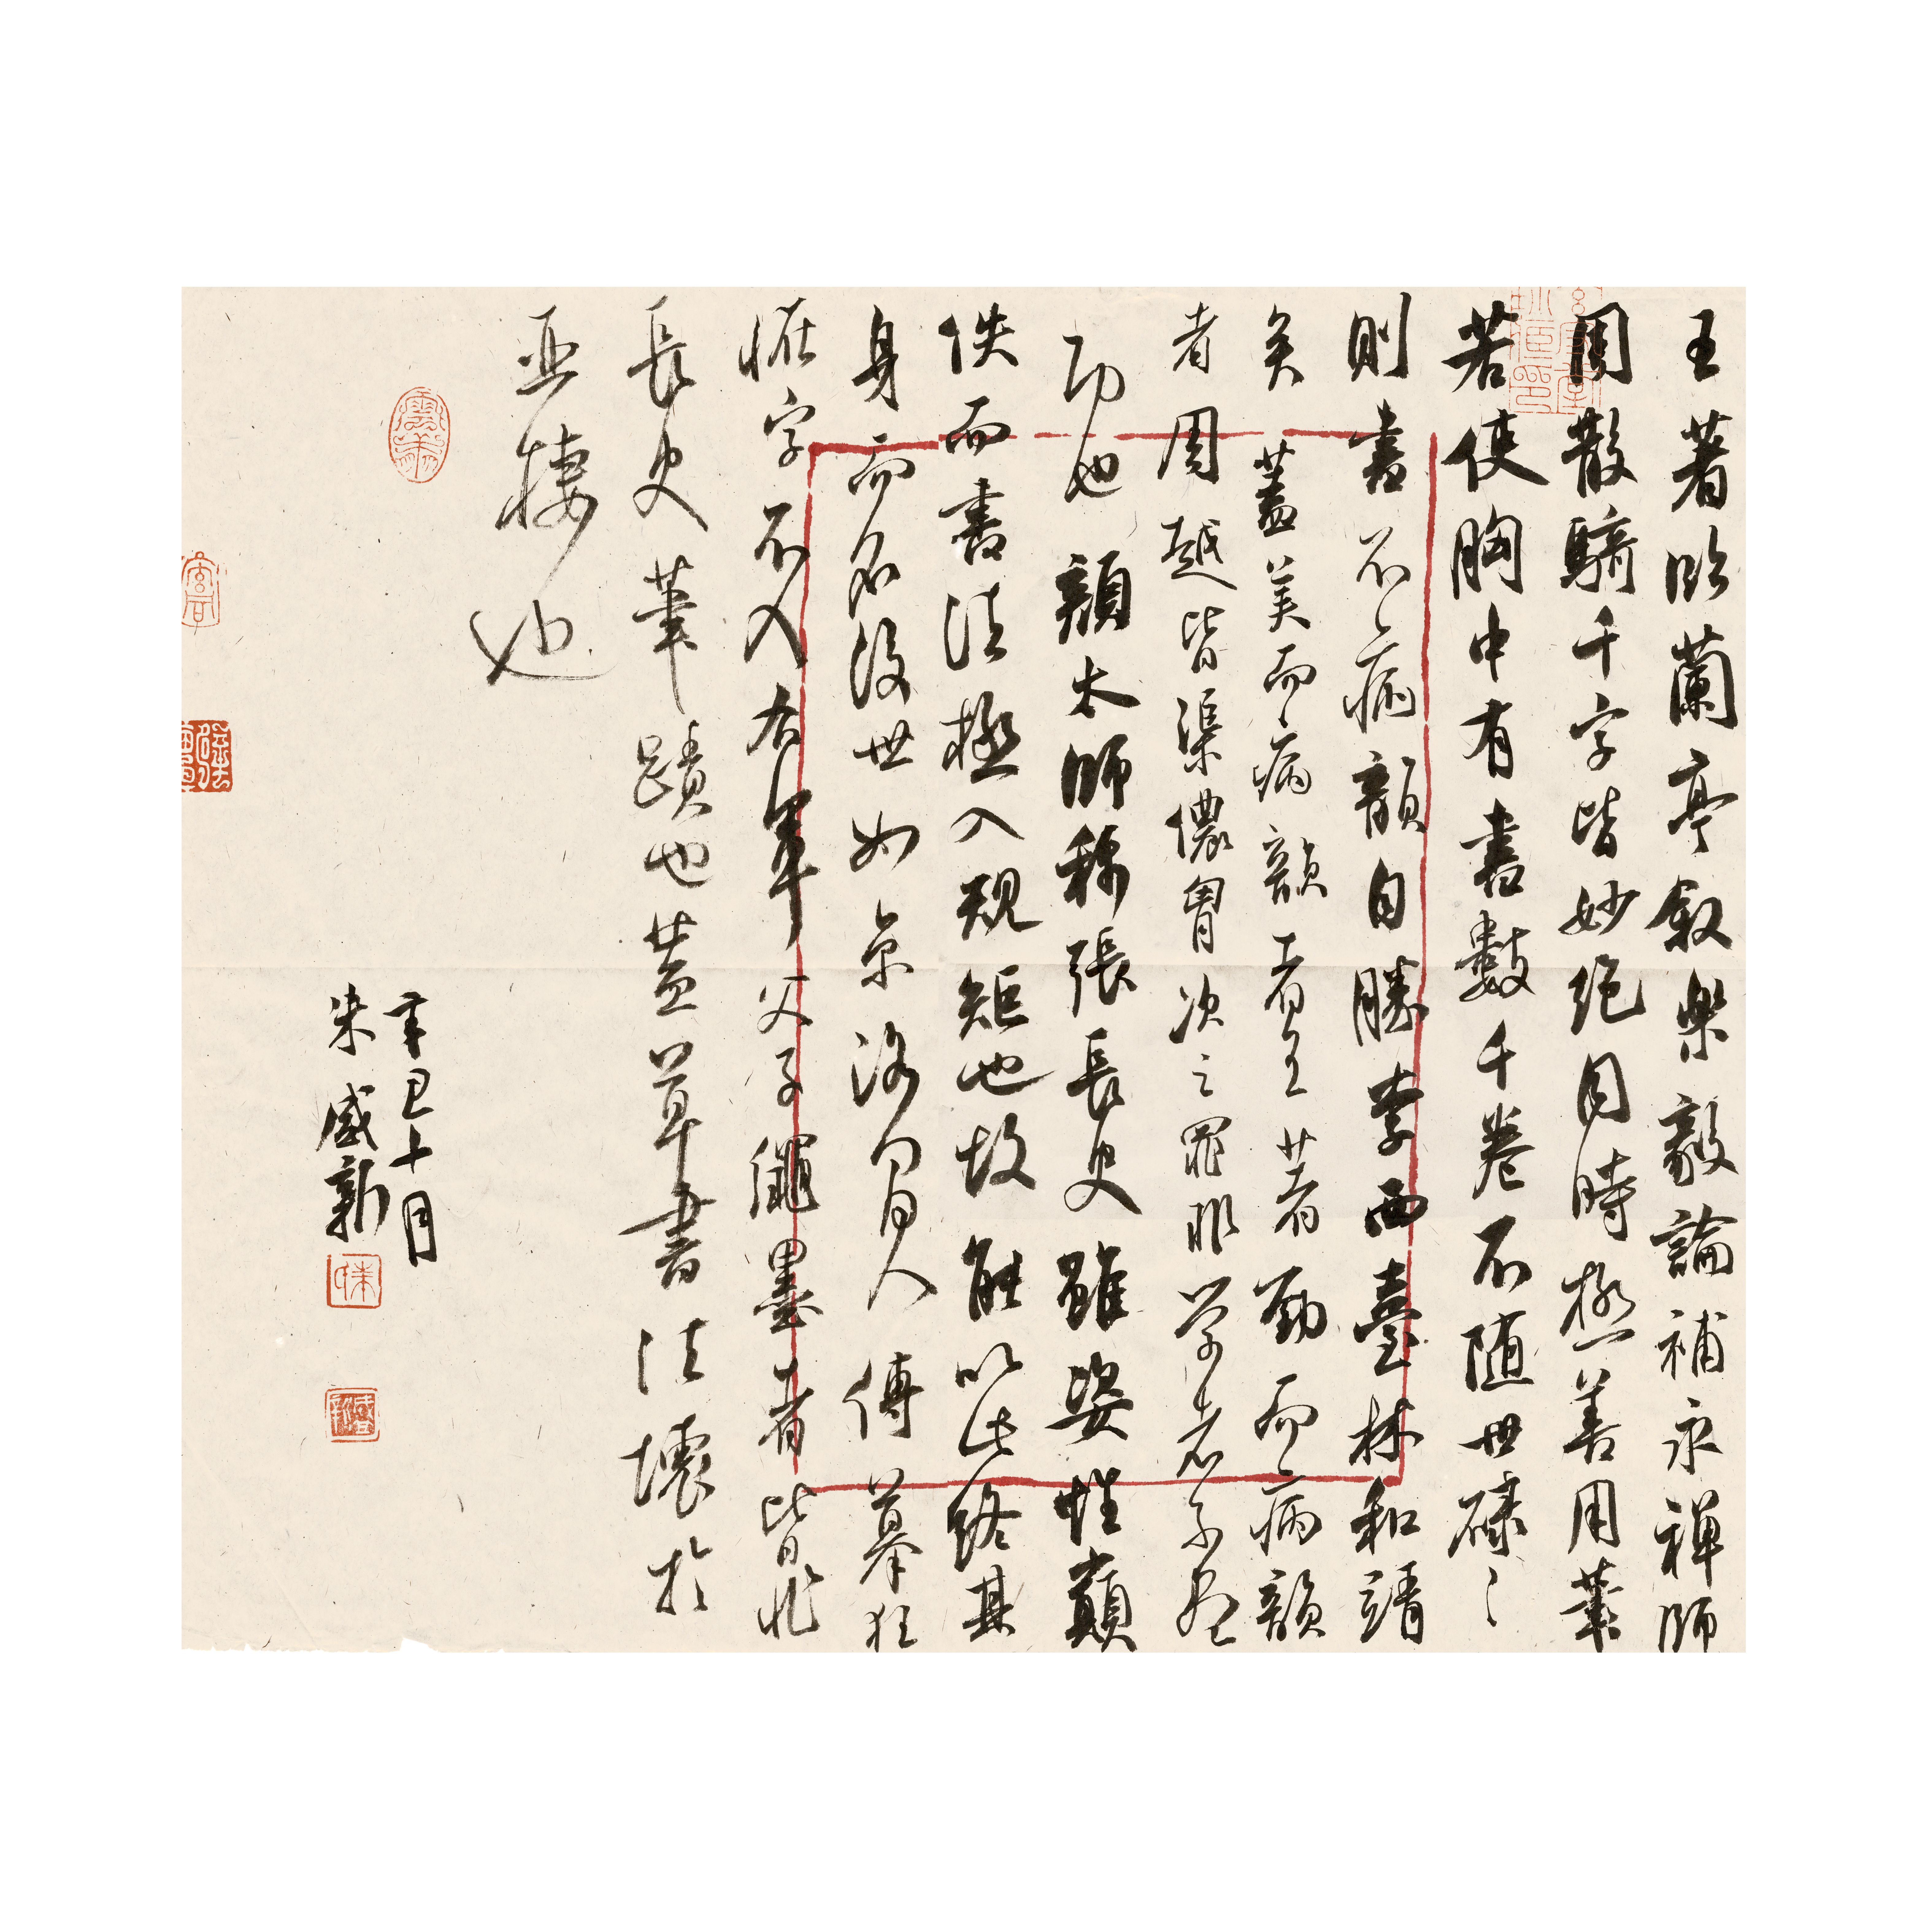 王著臨蘭亭敘樂毅論補永禪師
周散騎千字皆妙絕同時極善用筆
若使胸中有書數千卷不隨世碌〻
則書不病韻自勝李西臺林和靖
矣蓋美而病韻者王著勁而病韻
者周越皆渠儂胷次之罪非學者不盡
功也顏太師稱張長史雖姿性顛
佚而書法極入規矩也故能以此終其
身而名後世如京洛間人傳摹狂
怪字不入右軍父子繩墨者皆非
長史筆蹟也蓋草書法壞於
亞棲也
辛丑十月
朱盛新